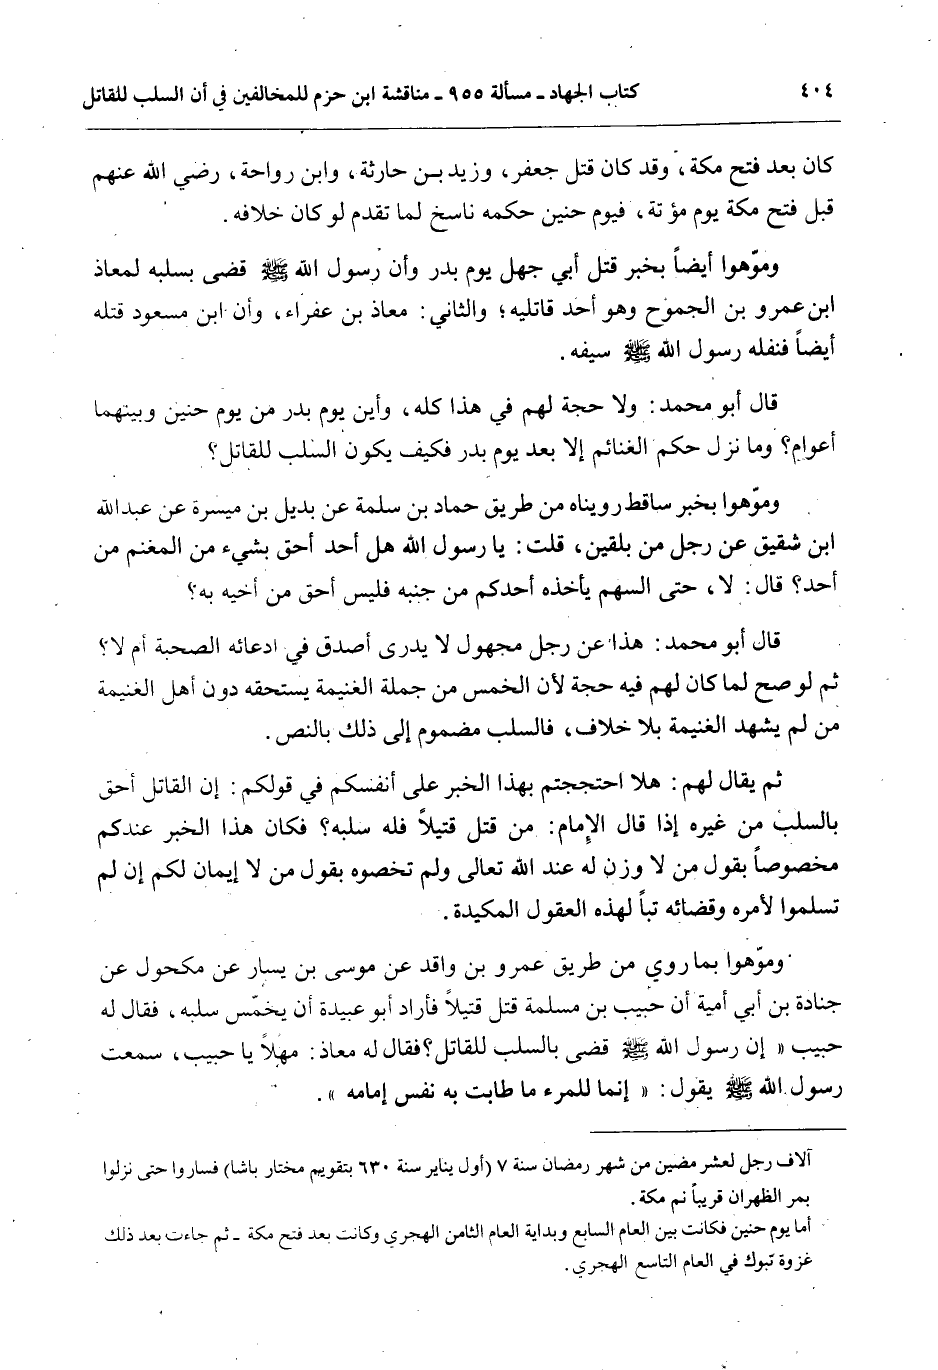 ٤٠٤
كتاب الجهاد ـ مسألة ٩٥٥ ـ مناقشة ابن حزم للمخالفين في أن السلب للقاتل
كان بعد فتح مكة، وقد كان قتل جعفر، وزيد بـن حارثة، وابن رواحة، رضي الله عنهم
قبل فتح مكة يوم مؤتة، فيوم حنين حكمه ناسخ لما تقدم لو كان خلافه.
وموّهوا أيضاً بخبر قتل أبي جهل يوم بدر وأن رسول الله ﷺ قضى بسلبه لمعاذ
ابن عمرو بن الجموح وهو أحد قاتليه؛ والثاني: معاذ بن عفراء، وأن ابن مسعود قتله
أيضاً فنفله رسول الله ﷺ سيفه.
قال أبو محمد: ولا حجة لهم في هذا كله، وأين يوم بدر من يوم حنين وبيتهما
أعوام؟ وما نزل حكم الغنائم إلا بعد يوم بدر فكيف يكون السلب للقاتل؟
وموّهوا بخبر ساقط رويناه من طريق حماد بن سلمة عن بديل بن ميسرة عن عبدالله
ابن شقيق عن رجل من بلقين، قلت: يا رسول الله هل أحد أحق بشيء من المغنم من
أحد؟ قال: لا، حتى السهم يأخذه أحدكم من جنبه فليس أحق من أخيه به؟
قال أبو محمد: هذا عن رجل مجهول لا يدرى أصدق في ادعائه الصحبة أم لا؟
ثم لو صح لما كان لهم فيه حجة لأن الخمس من جملة الغنيمة يستحقه دون أهل الغنيمة
من لم يشهد الغنيمة بلا خلاف، فالسلب مضموم إلى ذلك بالنص.
ثم يقال لهم: هلا احتججتم بهذا الخبر على أنفسكم في قولكم: إن القاتل أحق
بالسلب من غيره إذا قال الإمام: من قتل قتيلاً فله سلبه؟ فكان هذا الخبر عندكم
مخصوصاً بقول من لا وزن له عند الله تعالى ولم تخصوه بقول من لا إيمان لكم إن لم
تسلموا لأمره وقضائه تباً لهذه العقول المكيدة.
وموّهوا بما روي من طريق عمرو بن واقد عن موسى بن يسار عن مكحول عن
جنادة بن أبي أمية أن حبيب بن مسلمة قتل قتيلاً فأراد أبو عبيدة أن يخمّس سلبه، فقال له
حبيب « إن رسول الله ﷺ قضى بالسلب للقاتل؟ فقال له معاذ: مهلاً يا حبيب، سمعت
رسول الله ﷺ يقول: « إنما للمرء ما طابت به نفس إمامه ».
آلاف رجل لعشر مضين من شهر رمضان سنة ٧ (أول يناير سنة ٦٣٠ بتقويم مختار باشا) فساروا حتى نزلوا
بمر الظهران قريباً نم مكة.
أما يوم حنين فكانت بين العام السابع وبداية العام الثامن الهجري وكانت بعد فتح مكة ـ ثم جاءت بعد ذلك
غزوة تبوك في العام التاسع الهجري.